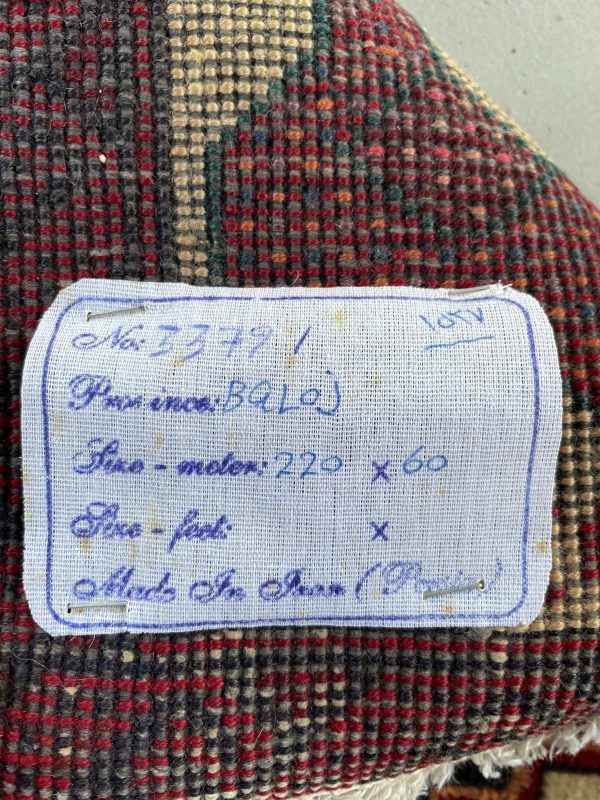 No: 33791
Province: BALOJ
Size - meter: 220 x 60
Size - feet: x
Made In Iran (Persian)